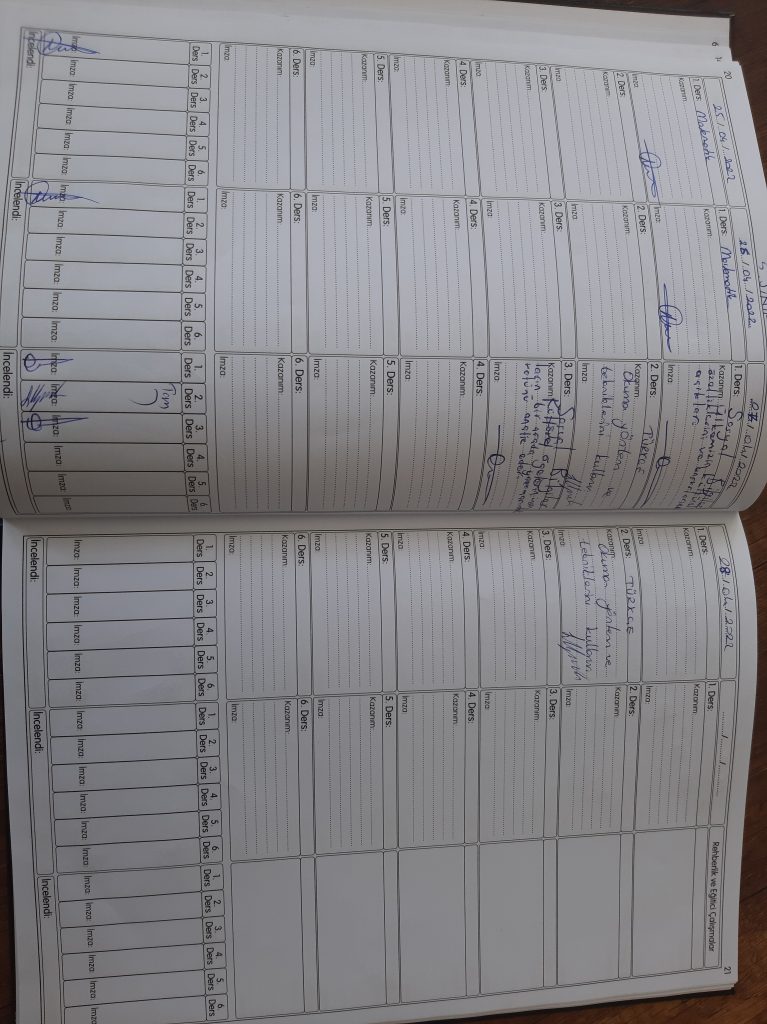 20
25/04/2022
1. Ders: Matematik
Kazanım:
İmza:
2. Ders:
Kazanım:
İmza:
3. Ders:
Kazanım:
İmza:
4. Ders:
Kazanım:
İmza:
5. Ders:
Kazanım:
İmza:
6. Ders:
Kazanım:
İmza:
1. Ders 2. Ders 3. Ders 4. Ders 5. Ders 6. Ders
İmza: İmza: İmza: İmza: İmza: İmza:
İncelendi:
/04/2022
1. Ders: Matematik
Kazanım:
İmza:
2. Ders:
Kazanım:
İmza:
3. Ders:
Kazanım:
İmza:
4. Ders:
Kazanım:
İmza:
5. Ders:
Kazanım:
İmza:
6. Ders:
Kazanım:
İmza:
1. Ders 2. Ders 3. Ders 4. Ders 5. Ders 6. Ders
İmza: İmza: İmza: İmza: İmza: İmza:
İncelendi:
/04/2022
1. Ders: Sosyal
Kazanım:
özelliklerini ve
İmza:
2. Ders: TÜRKÇE
Kazanım:
Okuma yöntem ve
tekniklerini kullanır
İmza:
3. Ders: Sosyal
Kazanım:
için bir arada
rolünü analiz eder
İmza:
4. Ders:
Kazanım:
İmza:
5. Ders:
Kazanım:
İmza:
6. Ders:
Kazanım:
İmza:
1. Ders 2. Ders 3. Ders 4. Ders 5. Ders 6. Ders
İmza: İmza: İmza: İmza: İmza: İmza:
İncelendi:
21
08/04/2022
1. Ders:
Kazanım:
İmza:
2. Ders: TÜRKÇE
Kazanım:
Okuma yöntem ve
tekniklerini kullanır
İmza:
3. Ders:
Kazanım:
İmza:
4. Ders:
Kazanım:
İmza:
5. Ders:
Kazanım:
İmza:
6. Ders:
Kazanım:
İmza:
1. Ders 2. Ders 3. Ders 4. Ders 5. Ders 6. Ders
İmza: İmza: İmza: İmza: İmza: İmza:
İncelendi:
......../......../........
1. Ders:
Kazanım:
İmza:
2. Ders:
Kazanım:
İmza:
3. Ders:
Kazanım:
İmza:
4. Ders:
Kazanım:
İmza:
5. Ders:
Kazanım:
İmza:
6. Ders:
Kazanım:
İmza:
1. Ders 2. Ders 3. Ders 4. Ders 5. Ders 6. Ders
İmza: İmza: İmza: İmza: İmza: İmza:
İncelendi:
Rehberlik ve Eğitici Çalışmalar
1. Ders 2. Ders 3. Ders 4. Ders 5. Ders 6. Ders
İmza: İmza: İmza: İmza: İmza: İmza:
İncelendi: